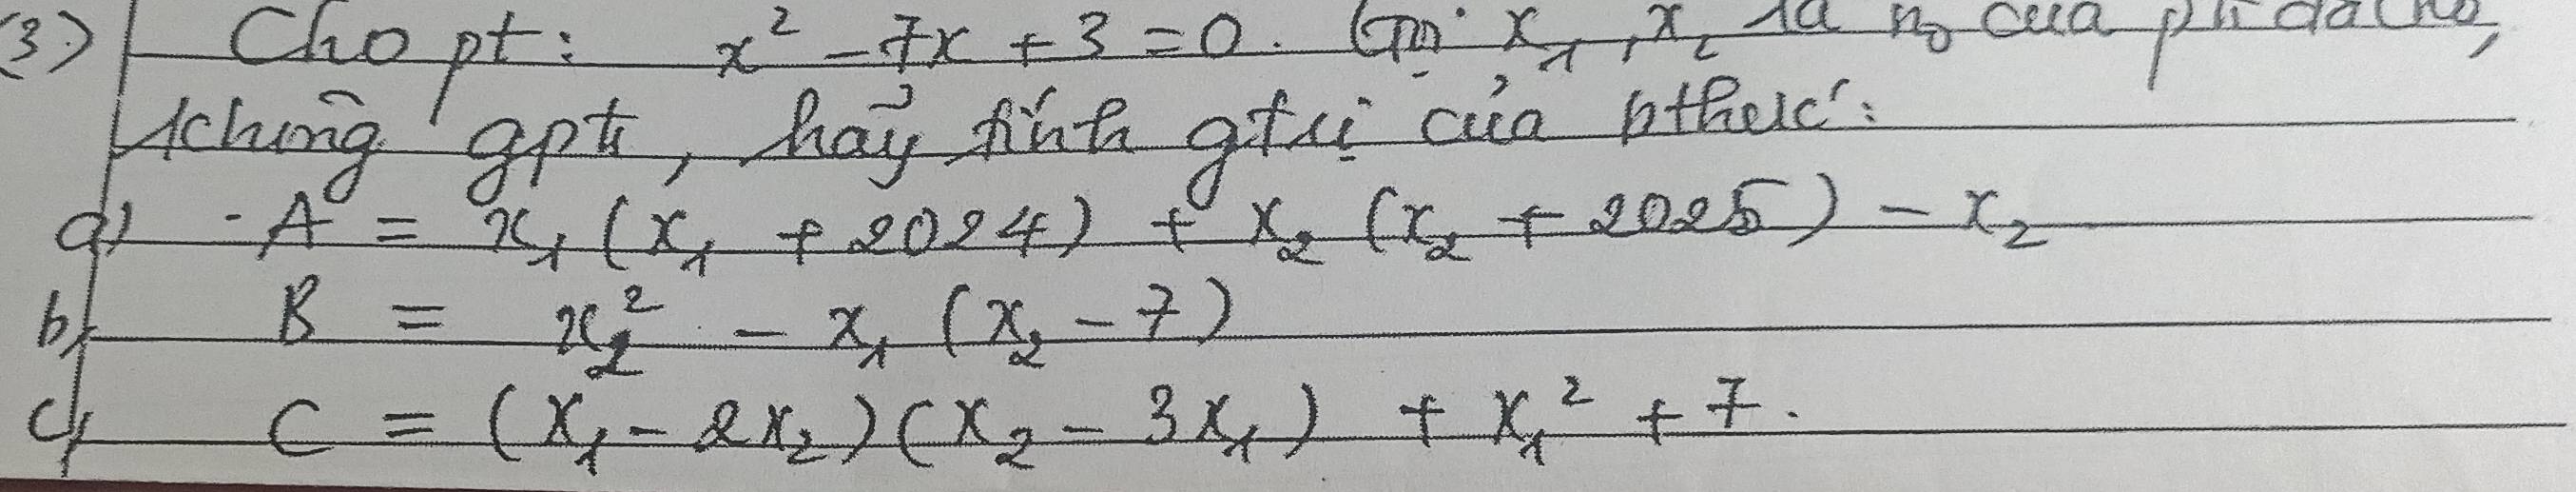 (3.) Cho pt: x² - 7x + 3 = 0. Gọi x₁, x₂ là no của pt đã cho,
không gpt, hãy tính gtrị của bthức:
a) A = x₁(x₁ + 2024) + x₂(x₂ + 2025) - x₂
b) B = x₂² - x₁(x₂ - 7)
c) C = (x₁ - 2x₂)(x₂ - 3x₁) + x₁² + 7.